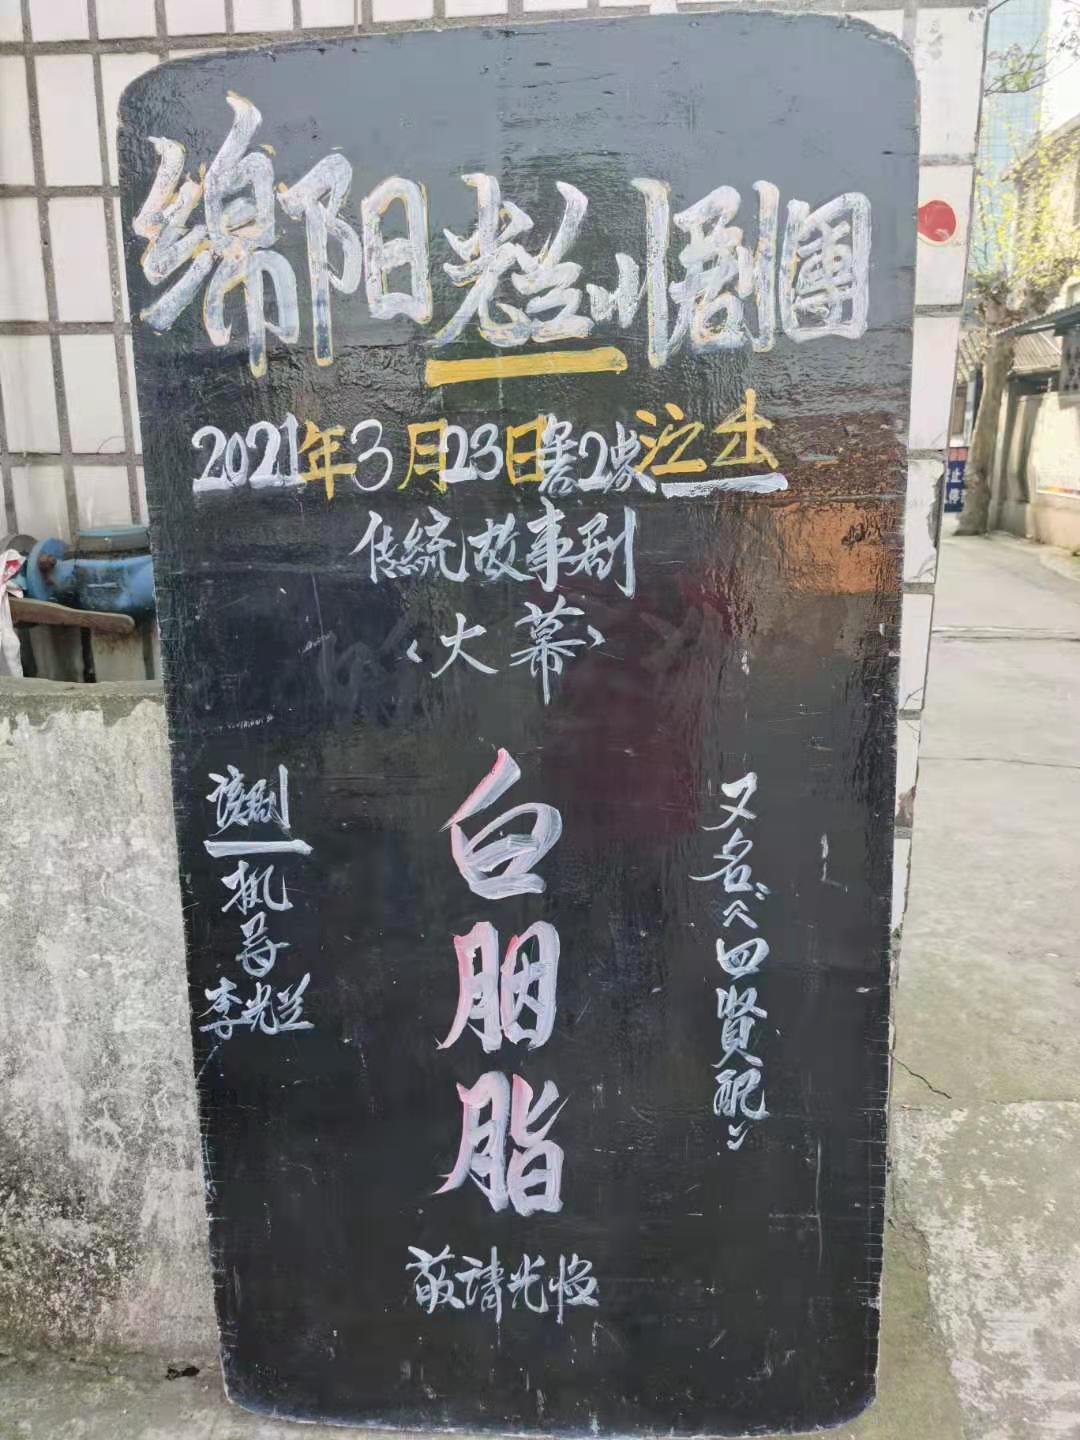 绵阳光兰川剧團
2021年3月23日 2 演出
传統故事剧
〈大幕〉
又名《四賢配》
白胭脂
该剧
执导
李光兰
敬請光临